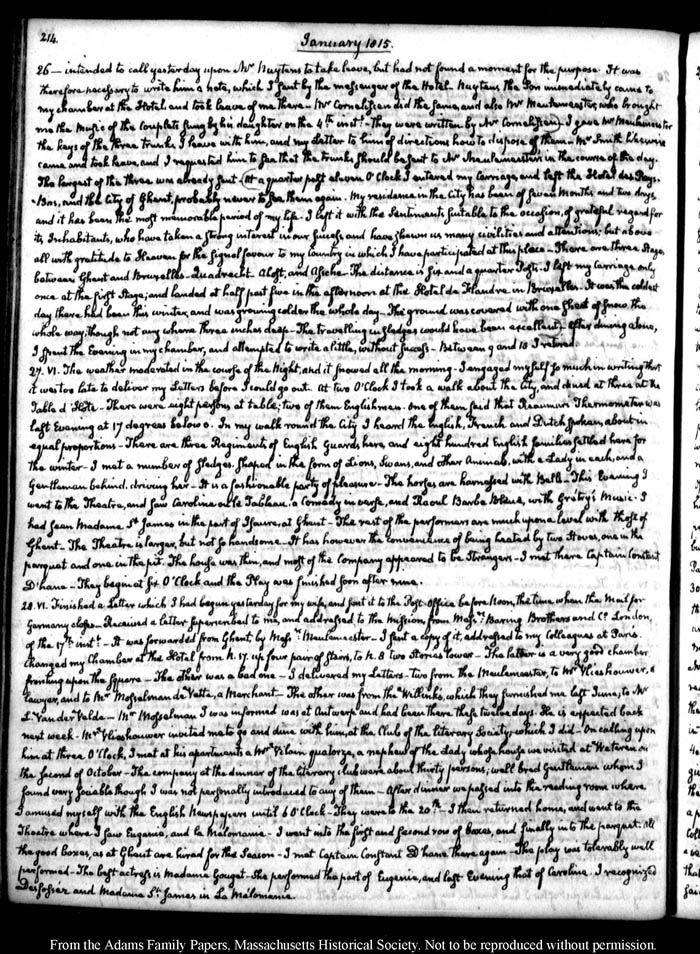 214.
January 1815.
26 — intended to call yesterday upon Mr. Nuytens to take leave, but had not found a moment for the purpose. It was
therefore necessary to write him a note, which I sent by the messenger of the Hotel. Nuytens the Son immediately came to
my chamber at the Hotel and took leave of me there — Mr Cornelissen did the same, and also Mr Meulemeester, who brought
me the Music of the couplets sung by his daughter on the 4th. inst. — They were written by Mr Cornelissen. I gave Mr Meulemeester
the keys of the three trunks I leave with him, and my Letter to him of directions how to dispose of them — Mr Smith likewise
came and took leave, and I requested him to see that the trunks should be sent to Mr Meulemeester's in the course of the day.
The largest of the three was already sent. At a quarter past eleven O'Clock I entered my Carriage, and left the Hotel des Pays-
-Bas, and the City of Ghent, probably never to see them again. My residence in the City has been of seven Months and two days,
and it has been the most memorable period of my life. I left it with the sentiments suitable to the occasion, of grateful regard for
its Inhabitants, who have taken a strong interest in our success and have shewn us many civilities and attentions; but above
all with gratitude to Heaven for the signal favour to my Country in which I have participated at this place — There are three Stages
between Ghent and Bruxelles. Quadrecht. Alost, and Asche. The distance is six and a quarter Posts. I left my Carriage only
once at the first Stage; and landed at half past five in the afternoon at the Hotel de Flandre in Bruxelles. It was the coldest
day there had been this winter, and was growing colder the whole day. The ground was covered with one sheet of snow the
whole way; though not any where three inches deep — The travelling in sledges would have been excellent. After dining alone,
I spent the Evening in my chamber, and attempted to write a little, without success — Between 9 and 10 I retired.
27. VI. The weather moderated in the course of the Night, and it snowed all the morning. I engaged myself so much in writing that
it was too late to deliver my Letters before I could go out. At two O'Clock I took a walk about the City, and dined at three at the
Table d'Hote — There were eight persons at table; two of them Englishmen. one of them said that Reaumur's Thermometer was
last Evening at 17 degrees below 0. In my walk round the City I heard the English, French and Dutch spoken, about in
equal proportions — There are three Regiments of English Guards here, and eight hundred English families settled here for
the winter — I met a number of sledges, shaped in the form of Lions, Swans, and other Animals, with a Lady in each, and a
Gentleman behind, driving her — It is a fashionable party of pleasure. The horses are harnessed with Bells — This Evening I
went to the Theatre, and saw Caroline ou le Tableau, a Comedy in verse, and Raoul Barbe Bleue, with Gretry's Music. I
had seen Madame St. James in the part of Isaure, at Ghent — The rest of the performers are much upon a level with those of
Ghent — The Theatre is larger, but not so handsome — It has however the convenience of being heated by two Stoves, one in the
parquet and one in the pit. The house was thin, and most of the Company appeared to be Strangers — I met there Captain Constant
D'hane — They begin at six O'Clock and the Play was finished soon after nine.
28. VI. Finished a Letter which I had begun yesterday for my wife, and sent it to the Post-Office before Noon, the time when the Mail for
Germany closes — Received a letter superscribed to me, and addressed to the Mission, from Messrs. Baring Brothers and Co. London,
of the 17th. inst. — It was forwarded from Ghent by Messrs. Meulemeester — I sent a copy of it, addressed to my Colleagues at Paris.
changed my Chamber at the Hotel from N. 17. up four pair of stairs, to N. 8 two stories lower — The latter is a very good chamber
fronting upon the square — The other was a bad one — I delivered my Letters — two from the Meulemeester, to Mr Vlieshouwer, a
Lawyer, and to Mr Mosselman de Vatte, a Merchant — The other was from the Willinks, which they furnished me last June; to Mr
L. Van de Velde — Mr Mosselman I was informed was at Antwerp and had been there these twelve days. He is expected back
next week — Mr Vlieshouwer invited me to go and dine with him, at the Club of the literary Society; which I did — On calling upon
him at three O'Clock, I met at his apartments a Mr Vilain quatorze, a nephew of the Lady whose house we visited at Wateren on
the second of October — The company at the dinner of the literary club were about thirty persons; well bred Gentlemen whom I
found very sociable though I was not personally introduced to any of them — After dinner we passed into the reading room where
I amused myself with the English Newspapers until 6 O'Clock — They were to the 20th. — I then returned home, and went to the
Theatre where I saw Eugenie, and la Melomanie — I went into the first and second row of boxes, and finally into the parquet. All
the good boxes, as at Ghent are hired for the Season — I met Captain Constant D'hane there again — The play was tolerably well
performed — The best actress is Madame Gouget. She performed the part of Eugenie, and last Evening that of Caroline. I recognized
Desfosses and Madame St. James in La Melomanie.
From the Adams Family Papers, Massachusetts Historical Society. Not to be reproduced without permission.